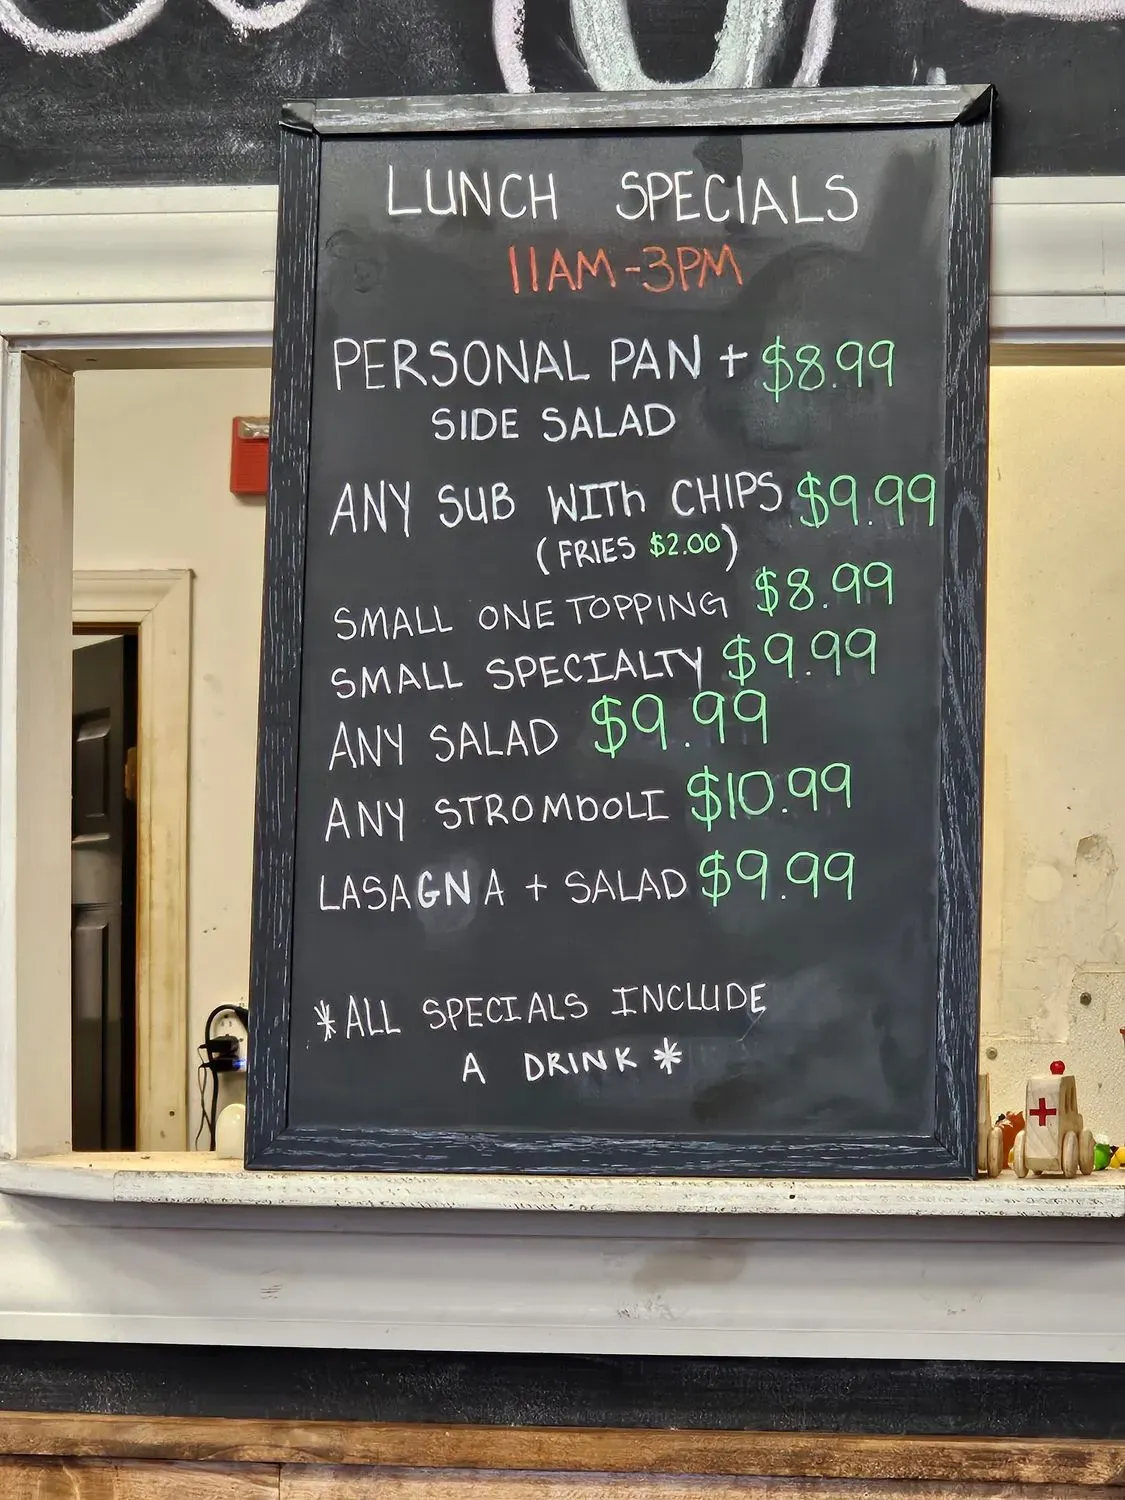 LUNCH SPECIALS
11AM-3PM
PERSONAL PAN + $8.99
SIDE SALAD
ANY SUB WITh CHIPS $9.99
(FRIES $2.00)
SMALL ONE TOPPING $8.99
SMALL SPECIALTY $9.99
ANY SALAD $9.99
ANY STROMbOLI $10.99
LASAGNA + SALAD $9.99
*ALL SPECIALS INCLUDE
A DRINK*